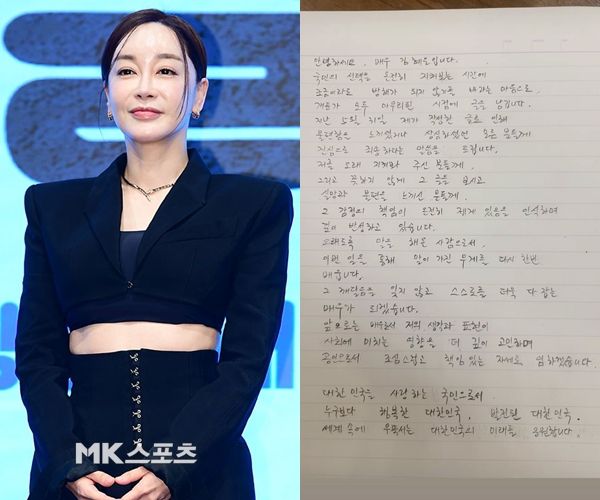 MK스포츠
안녕하세요, 배우 김혜은입니다.
국민의 선택을 온전히 지켜보는 시간에
조금이라도 방해가 되지 않기를 바라는 마음으로,
개표가 모두 마무리된 시점에 글을 남깁니다.
지난 5월 30일, 제가 작성한 글로 인해
불편함을 느끼셨거나 상심하셨던 많은 분들께
진심으로 죄송하다는 말씀을 드립니다.
저를 오래 지켜봐 주신 분들께,
그리고 뜻하지 않게 그 글을 보시고
실망과 불편을 느끼신 분들께,
그 감정의 책임이 온전히 제게 있음을 인식하며
깊이 반성하고 있습니다.
오래도록 말을 해온 사람으로서,
이번 일을 통해 말이 가진 무게를 다시 한번
배웁니다.
그 깨달음을 잊지 않고 스스로를 더욱 다잡는
배우가 되겠습니다.
앞으로는 배우로서 저의 생각과 표현이
사회에 미치는 영향을 더 깊이 고민하며
공인으로서 조심스럽고 책임 있는 자세로 임하겠습니다.
대한민국을 사랑하는 국민으로서
누구보다 행복한 대한민국, 발전된 대한민국,
세계 속에 우뚝서는 대한민국의 미래를 응원합니다.